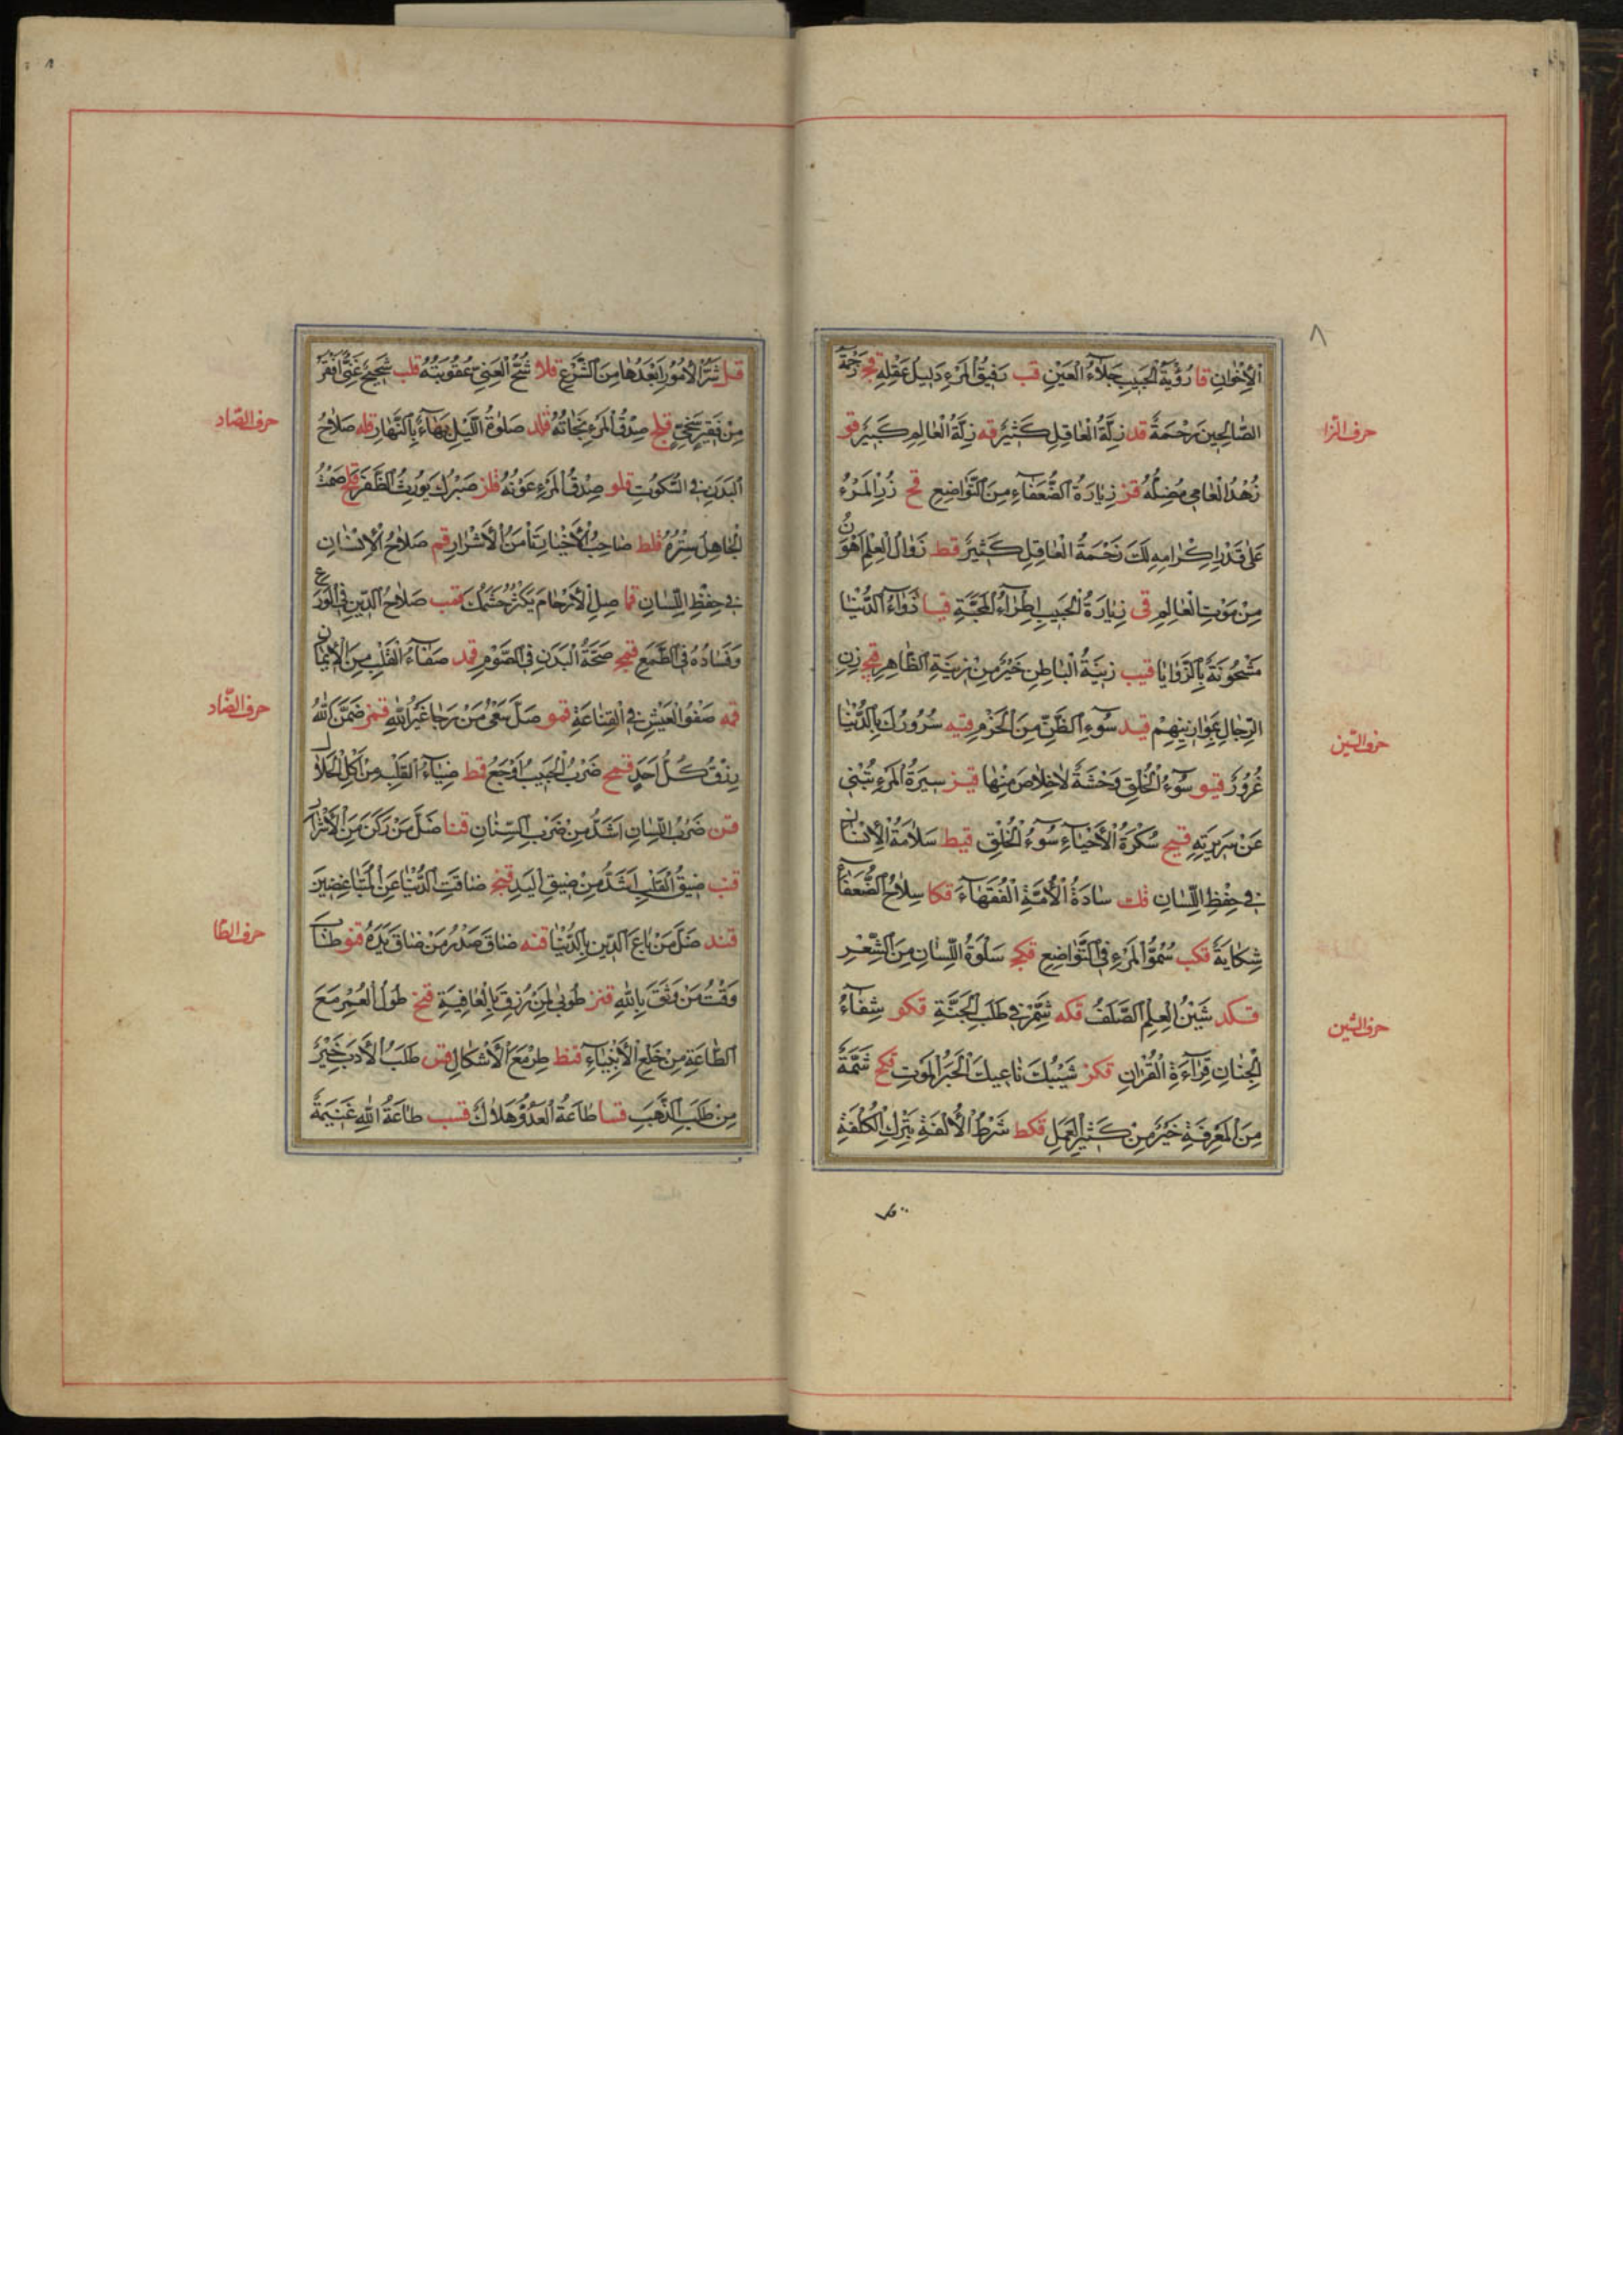 ٨
الْاِخْوَانِ قا رُؤْيَةُ الْحَبِيبِ جَلَاءُ الْعَيْنِ قب رَفِيقُ الْمَرْءِ دَلِيلُ عَقْلِهِ قج رَحْمَةُ
حرف الزا
الصَّالِحِينَ مَرْحَمَةٌ قد زَلَّةُ الْعَاقِلِ كَثِيرٌ قه زَلَّةُ الْعَالِمِ كَبِيرٌ قو
زُهْدُ الْعَامِي مُضِلَّةٌ قز زِيَارَةُ الضُّعَفَاءِ مِنَ التَّوَاضِعِ قح زُرِ الْمَرْءَ
عَلَى قَدْرِ اِكْرَامِهِ لَكَ زَحْمَةُ الْعَاقِلِ كَثِيرٌ قط زَوَالُ الْعِلْمِ اَهْوَنُ
مِنْ مَوْتِ الْعَالِمِ قى زِيَارَةُ الْحَبِيبِ اِطْرَاءُ الْمَحَبَّةِ قيا زَوَاءُ الدُّنْيَا
مَشْحُونَةٌ بِالرَّزَايَا قيب زِينَةُ الْبَاطِنِ خَيْرٌ مِنْ زِينَةِ الظَّاهِرِ قيج زِنِ
حرف السّين
الرِّجَالَ بِمَوَازِينِهِمْ قيد سُوءُ الظَّنِّ مِنَ الْحَزْمِ قيه سُرُورُكَ بِالدُّنْيَا
غُرُورٌ قيو سُوءُ الْخُلُقِ وَحْشَةٌ لَاخِلَاصَ مِنْهَا قيز سِيرَةُ الْمَرْءِ تُنْبِئُ
عَنْ سَرِيرَتِهِ قيح سُكْرَةُ الْأَحْيَاءِ سُوءُ الْخُلُقِ قيط سَلَامَةُ الْاِنْسَانِ
فِي حِفْظِ اللِّسَانِ قك سَادَةُ الْأُمَّةِ الْفُقَهَاءُ قكا سِلَاحُ الضُّعَفَاءِ
شِكَايَةٌ قكب سُمُوُّ الْمَرْءِ فِي التَّوَاضِعِ قكج سَلْوَةُ اللِّسَانِ مِنَ الشِّعْرِ
حرف الشّين
قكد شَيْنُ الْعِلْمِ الصَّلَفُ قكه شَمِّرْ فِي طَلَبِ الْجَنَّةِ قكو شِفَاءُ
الْجِنَانِ قِرَاءَةُ الْقُرْاٰنِ قكز شَيْبُكَ نَاعِيكَ الْخَبَرُ الْمَوْتِ قكح شَمَّةٌ
مِنَ الْمَعْرِفَةِ خَيْرٌ مِنْ كَثِيرِ الْعَمَلِ قكط شَرْطُ الْأُلْفَةِ تَرْكُ الْكُلْفَةِ
قل
قل شَرُّ الْأُمُورِ اَبْعَدُهَا مِنَ الشَّرْعِ قلا شُحُّ الْغَنِيِّ عُقُوبَتُهُ قلب شَحِيحٌ غَنِيٌّ اَفْقَرُ
حرف الصّاد
مِنْ فَقِيرٍ سَخِيٍّ قلج صِدْقُ الْمَرْءِ نَجَاتُهُ قلد صَلٰوةُ اللَّيْلِ بَهَاءٌ بِالنَّهَارِ قله صَلَاحُ
الْبَدَنِ فِي السُّكُوتِ قلو صِدْقُ الْمَرْءِ عَوْنُهُ قلز صَبْرُكَ يُورِثُ الظَّفَرَ قلح صَمْتُ
الْجَاهِلِ سِتْرُهُ قلط صَاحِبِ الْأَخْيَارَ تَأْمَنِ الْأَشْرَارَ قم صَلَاحُ الْاِنْسَانِ
فِي حِفْظِ اللِّسَانِ قما صِلِ الْأَرْحَامَ يَكْثُرْ حَشَمُكَ قمب صَلَاحُ الدِّينِ فِي الْوَرَعِ
وَفَسَادُهُ فِي الطَّمَعِ قمج صِحَّةُ الْبَدَنِ فِي الصَّوْمِ قمد صَفَاءُ الْقَلْبِ مِنَ الْاِيمَانِ
حرف الضّاد
قمه صَفْوُ الْعَيْشِ فِي الْقَنَاعَةِ قمو ضَلَّ سَعْىُ مَنْ رَجَا غَيْرَ اللهِ قمز ضَمِنَ اللهُ
رِزْقَ كُلِّ اَحَدٍ قمح ضَرْبُ الْحَبِيبِ اَوْجَعُ قمط ضِيَاءُ الْقَلْبِ مِنْ اَكْلِ الْحَلَالِ
قن ضَرْبُ اللِّسَانِ اَشَدُّ مِنْ ضَرْبِ السِّنَانِ قنا ضَلَّ مَنْ رَكَنَ مِنَ الْأَشْرَارِ
قنب ضِيقُ الْقَلْبِ اَشَدُّ مِنْ ضِيقِ الْيَدِ قنج ضَاقَتِ الدُّنْيَا عَنِ الْمُتَبَاغِضِينَ
حرف الطّا
قند ضَلَّ مَنْ بَاعَ الدِّينَ بِالدُّنْيَا قنه ضَاقَ صَدْرُ مَنْ ضَاقَ يَدُهُ قنو طَابَ
وَقْتُ مَنْ وَثِقَ بِاللهِ قنز طُوبٰى لِمَنْ رُزِقَ بِالْعَافِيَةِ قنح طُولُ الْعُمْرِ مَعَ
الطَّاعَةِ مِنْ خَلْعِ الْأَنْبِيَاءِ قنط طِرْ مَعَ الْأَشْكَالِ قس طَلَبُ الْأَدَبِ خَيْرٌ
مِنْ طَلَبِ الذَّهَبِ قسا طَاعَةُ الْعَدُوِّ هَلَاكٌ قسب طَاعَةُ اللهِ غَنِيمَةٌ